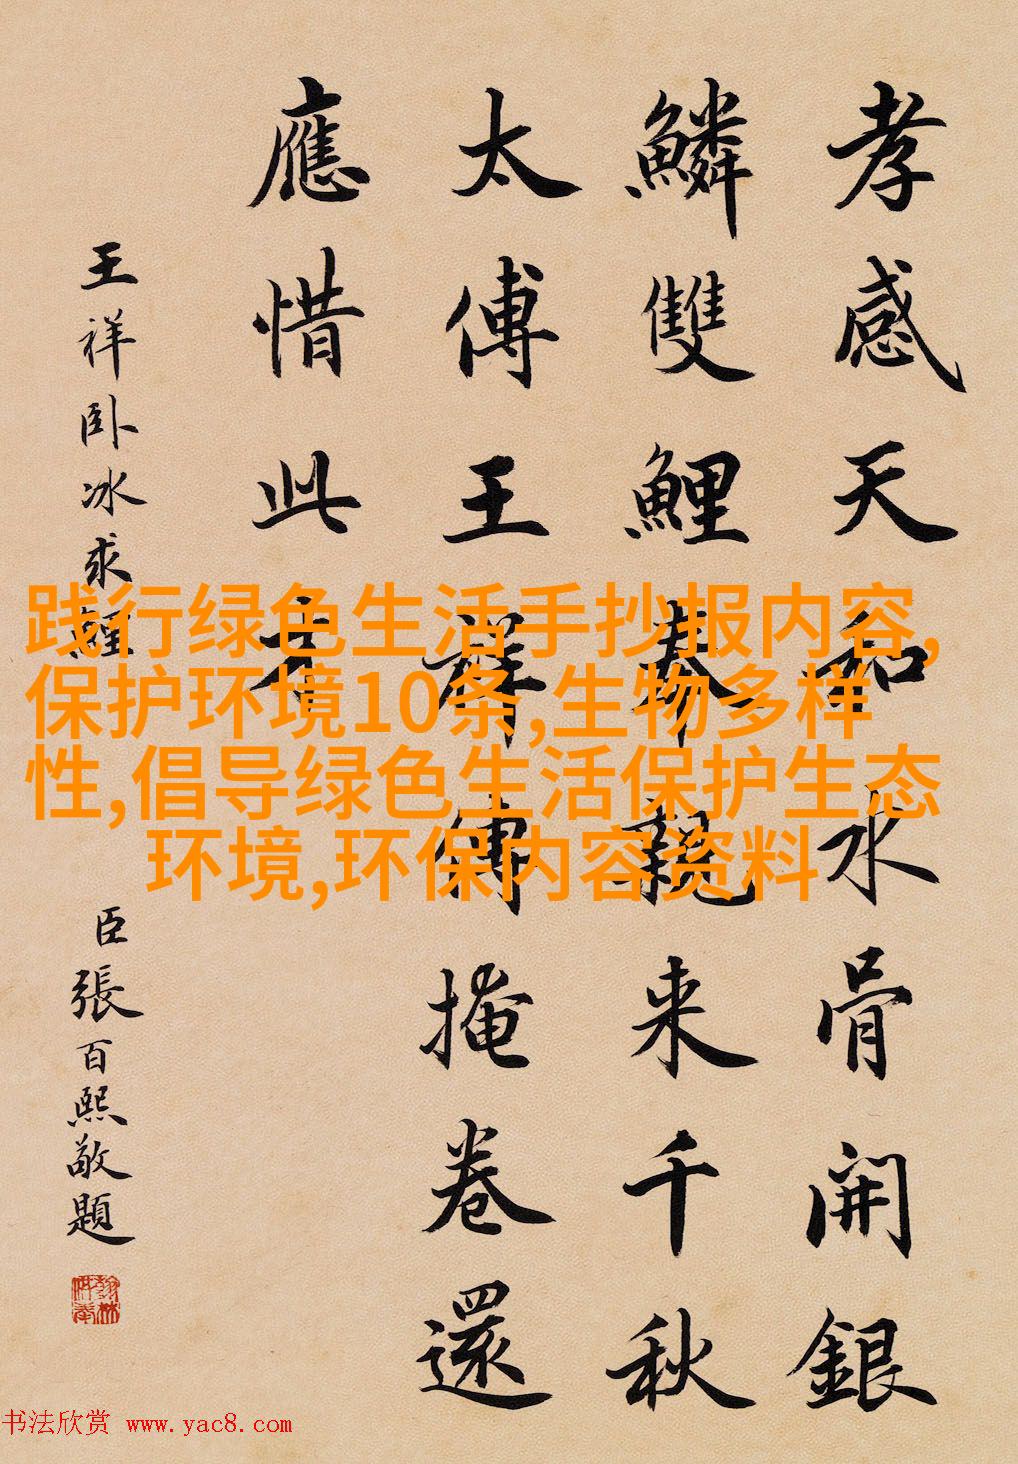 孝感天和水骨開銀
鱗雙鯉奉親来千秋
太傅王祥傳掩卷還
應惜此
王祥卧冰求鯉
臣張百熙敬題
践行绿色生活手抄报内容,
保护环境10条,生物多样
性,倡导绿色生活保护生态
环境,环保内容资料
书法欣赏 www.yac8.com